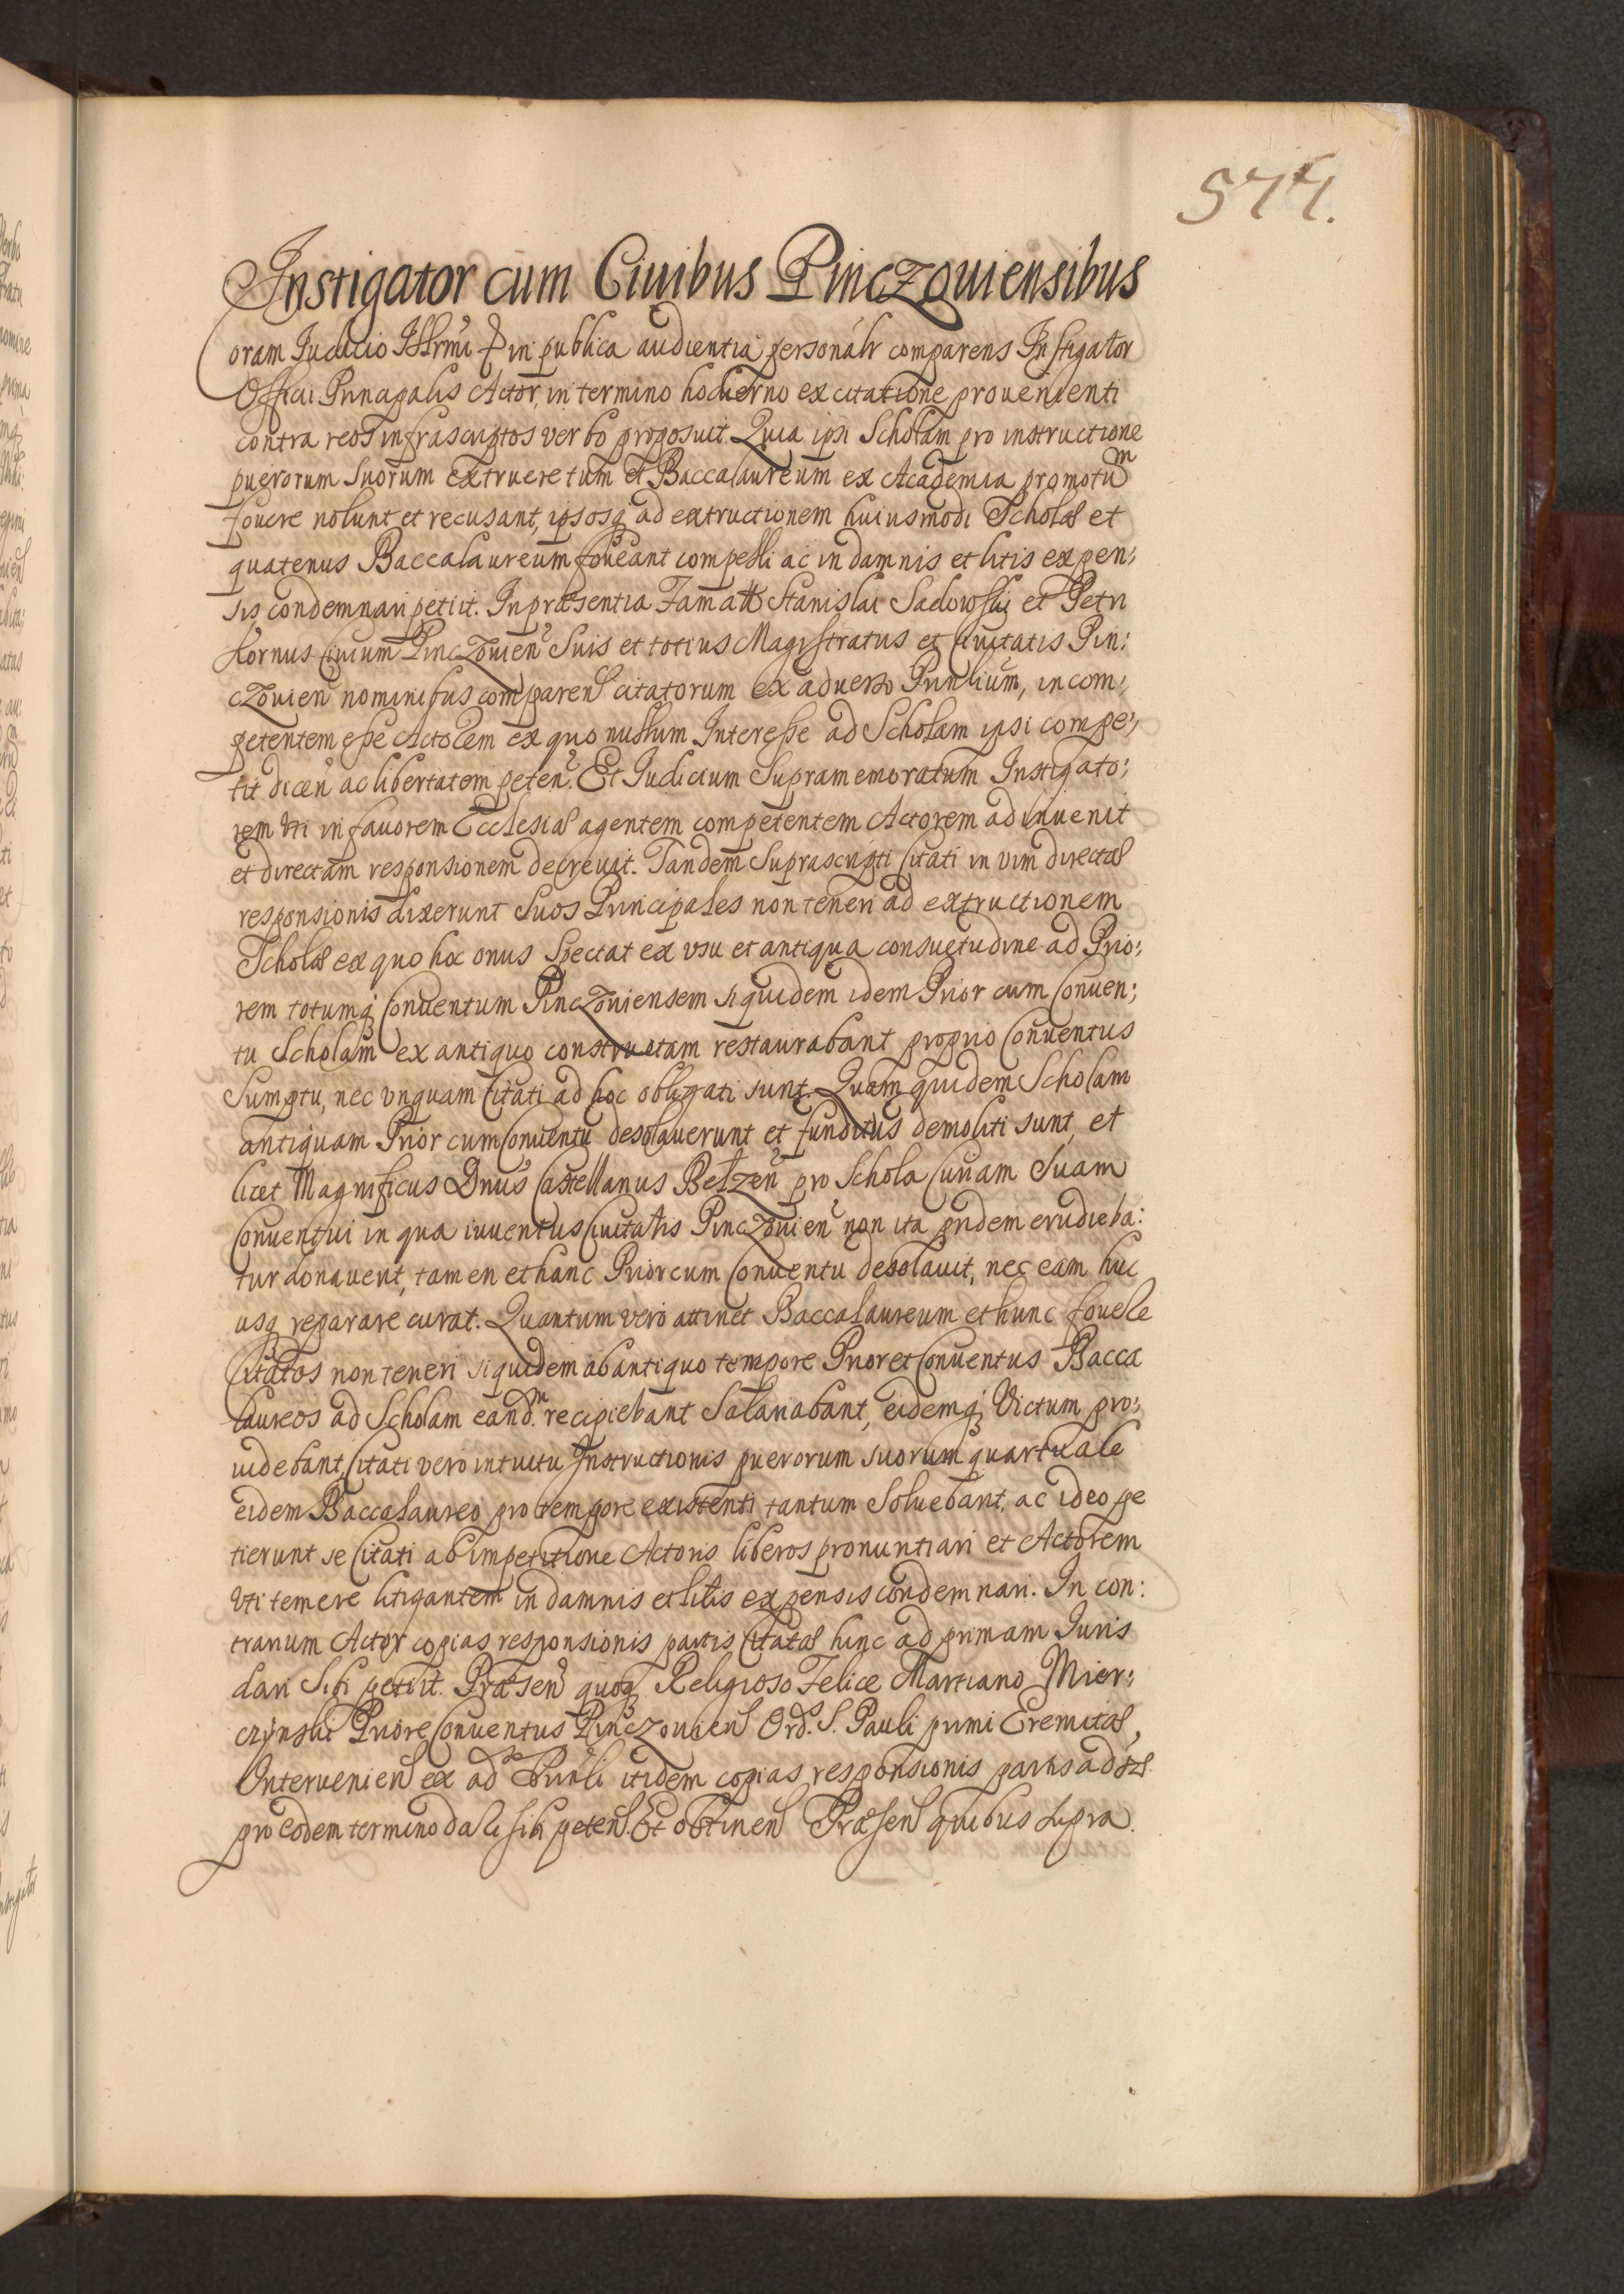 577.
Instigator cum Ciuibus Pinczouiensibus
Coram Iudicio Illrmi & in publica audientia personalr comparens Instigator
Officii Principalis Actor, in termino hodierno ex citatione prouenienti
contra reos infrascriptos verbo proposuit. Quia ipsi Scholam pro instructione
puerorum Suorum extruere tum et Baccalaureum ex Academia promotum
fouere nolunt et recusant, ipsosq ad extructionem huiusmodi Scholæ et
quatenus Baccalaureum foueant compelli ac in damnis et litis expen;
sis condemnari petiit. In præsentia Famatt Stanislai Sadowski et Petri
Kornus Ciuium Pinczouien Suis et totius Magistratus et Ciuitatis Pin:
czouien nominibus comparen citatorum ex aduerso Prinlium, incom;
petentem esse Actorem ex quo nullum Interesse ad Scholam ipsi compe;
tit dicen ac libertatem peten. Et Iudicium Supramemoratum Instigato;
rem vti in fauorem Ecclesiæ agentem competentem Actorem adinuenit
et directam responsionem decreuit. Tandem Suprascripti Citati in vim directæ
responsionis dixerunt Suos Principales non teneri ad extructionem
Scholæ ex quo hoc onus Spectat ex vsu et antiqua consuetudine ad Prio;
rem totumq Conuentum Pinczouiensem siquidem idem Prior cum Conuen;
tu Scholam ex antiquo constructam restaurabant proprio Conuentus
Sumptu, nec vnquam Citati ad hoc obligati sunt. Quam quidem Scholam
antiquam Prior cum Conuentu desolauerunt et funditus demoliti sunt, et
licet Magnificus Dnus Castellanus Belzen pro Schola Curiam Suam
Conuentui in qua iuuentus Ciuitatis Pinczouien non ita pridem erudieba:
tur donauerit, tamen et hanc Prior cum Conuentu desolauit, nec eam huc
usq reparare curat. Quantum vero attinet Baccalaureum et hunc fouere
Citatos non teneri siquidem ab antiquo tempore Prior et Conuentus Bacca
laureos ad Scholam eandm recipiebant Salariabant, eidemq Victum pro;
uidebant Citati vero intuitu Instructionis puerorum suorum quartuale
eidem Baccalaureo pro tempore existenti tantum Soluebant, ac ideo pe
tierunt se Citati ab impetitione Actoris liberos pronuntiari et Actorem
vti temere litigantem in damnis et litis expensis condemnari. In con:
trarium Actor copias responsionis partis Citatæ hinc ad primam Iuris
dari Sibi petiit. Præsen quoq Religioso Felice Martiano Mier;
czynski Priore Conuentus Pinczouien Ord. S. Pauli primi Eremitæ,
Interuenien ex ad Prinli itidem copias responsionis partis
pro eodem termino dari sibi peten. Et obtinen Præsen quibus supra.